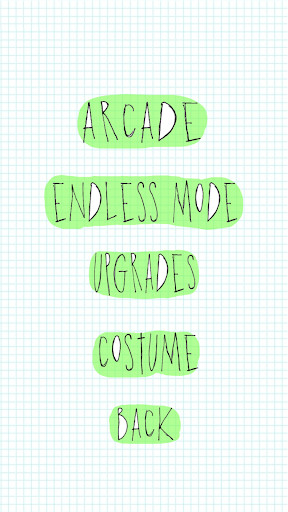 ARCADE
ENDLESS MODE
UPGRADES
COSTUME
BACK